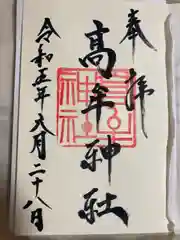 奉拝
高牟神社
高牟
神社
令和五年六月二十八日